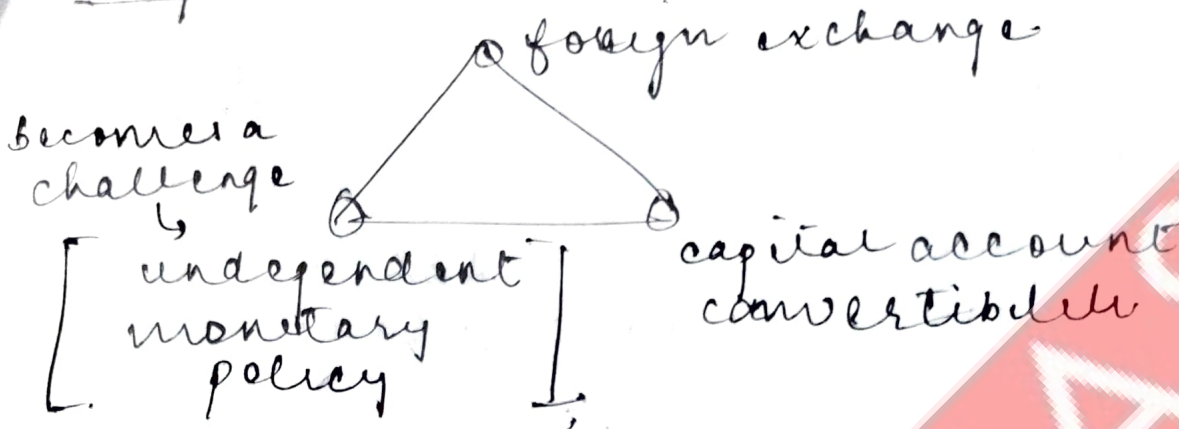 foreign exchange
becomes a
challenge
↳
[ independent
monetary
policy ]
capital account